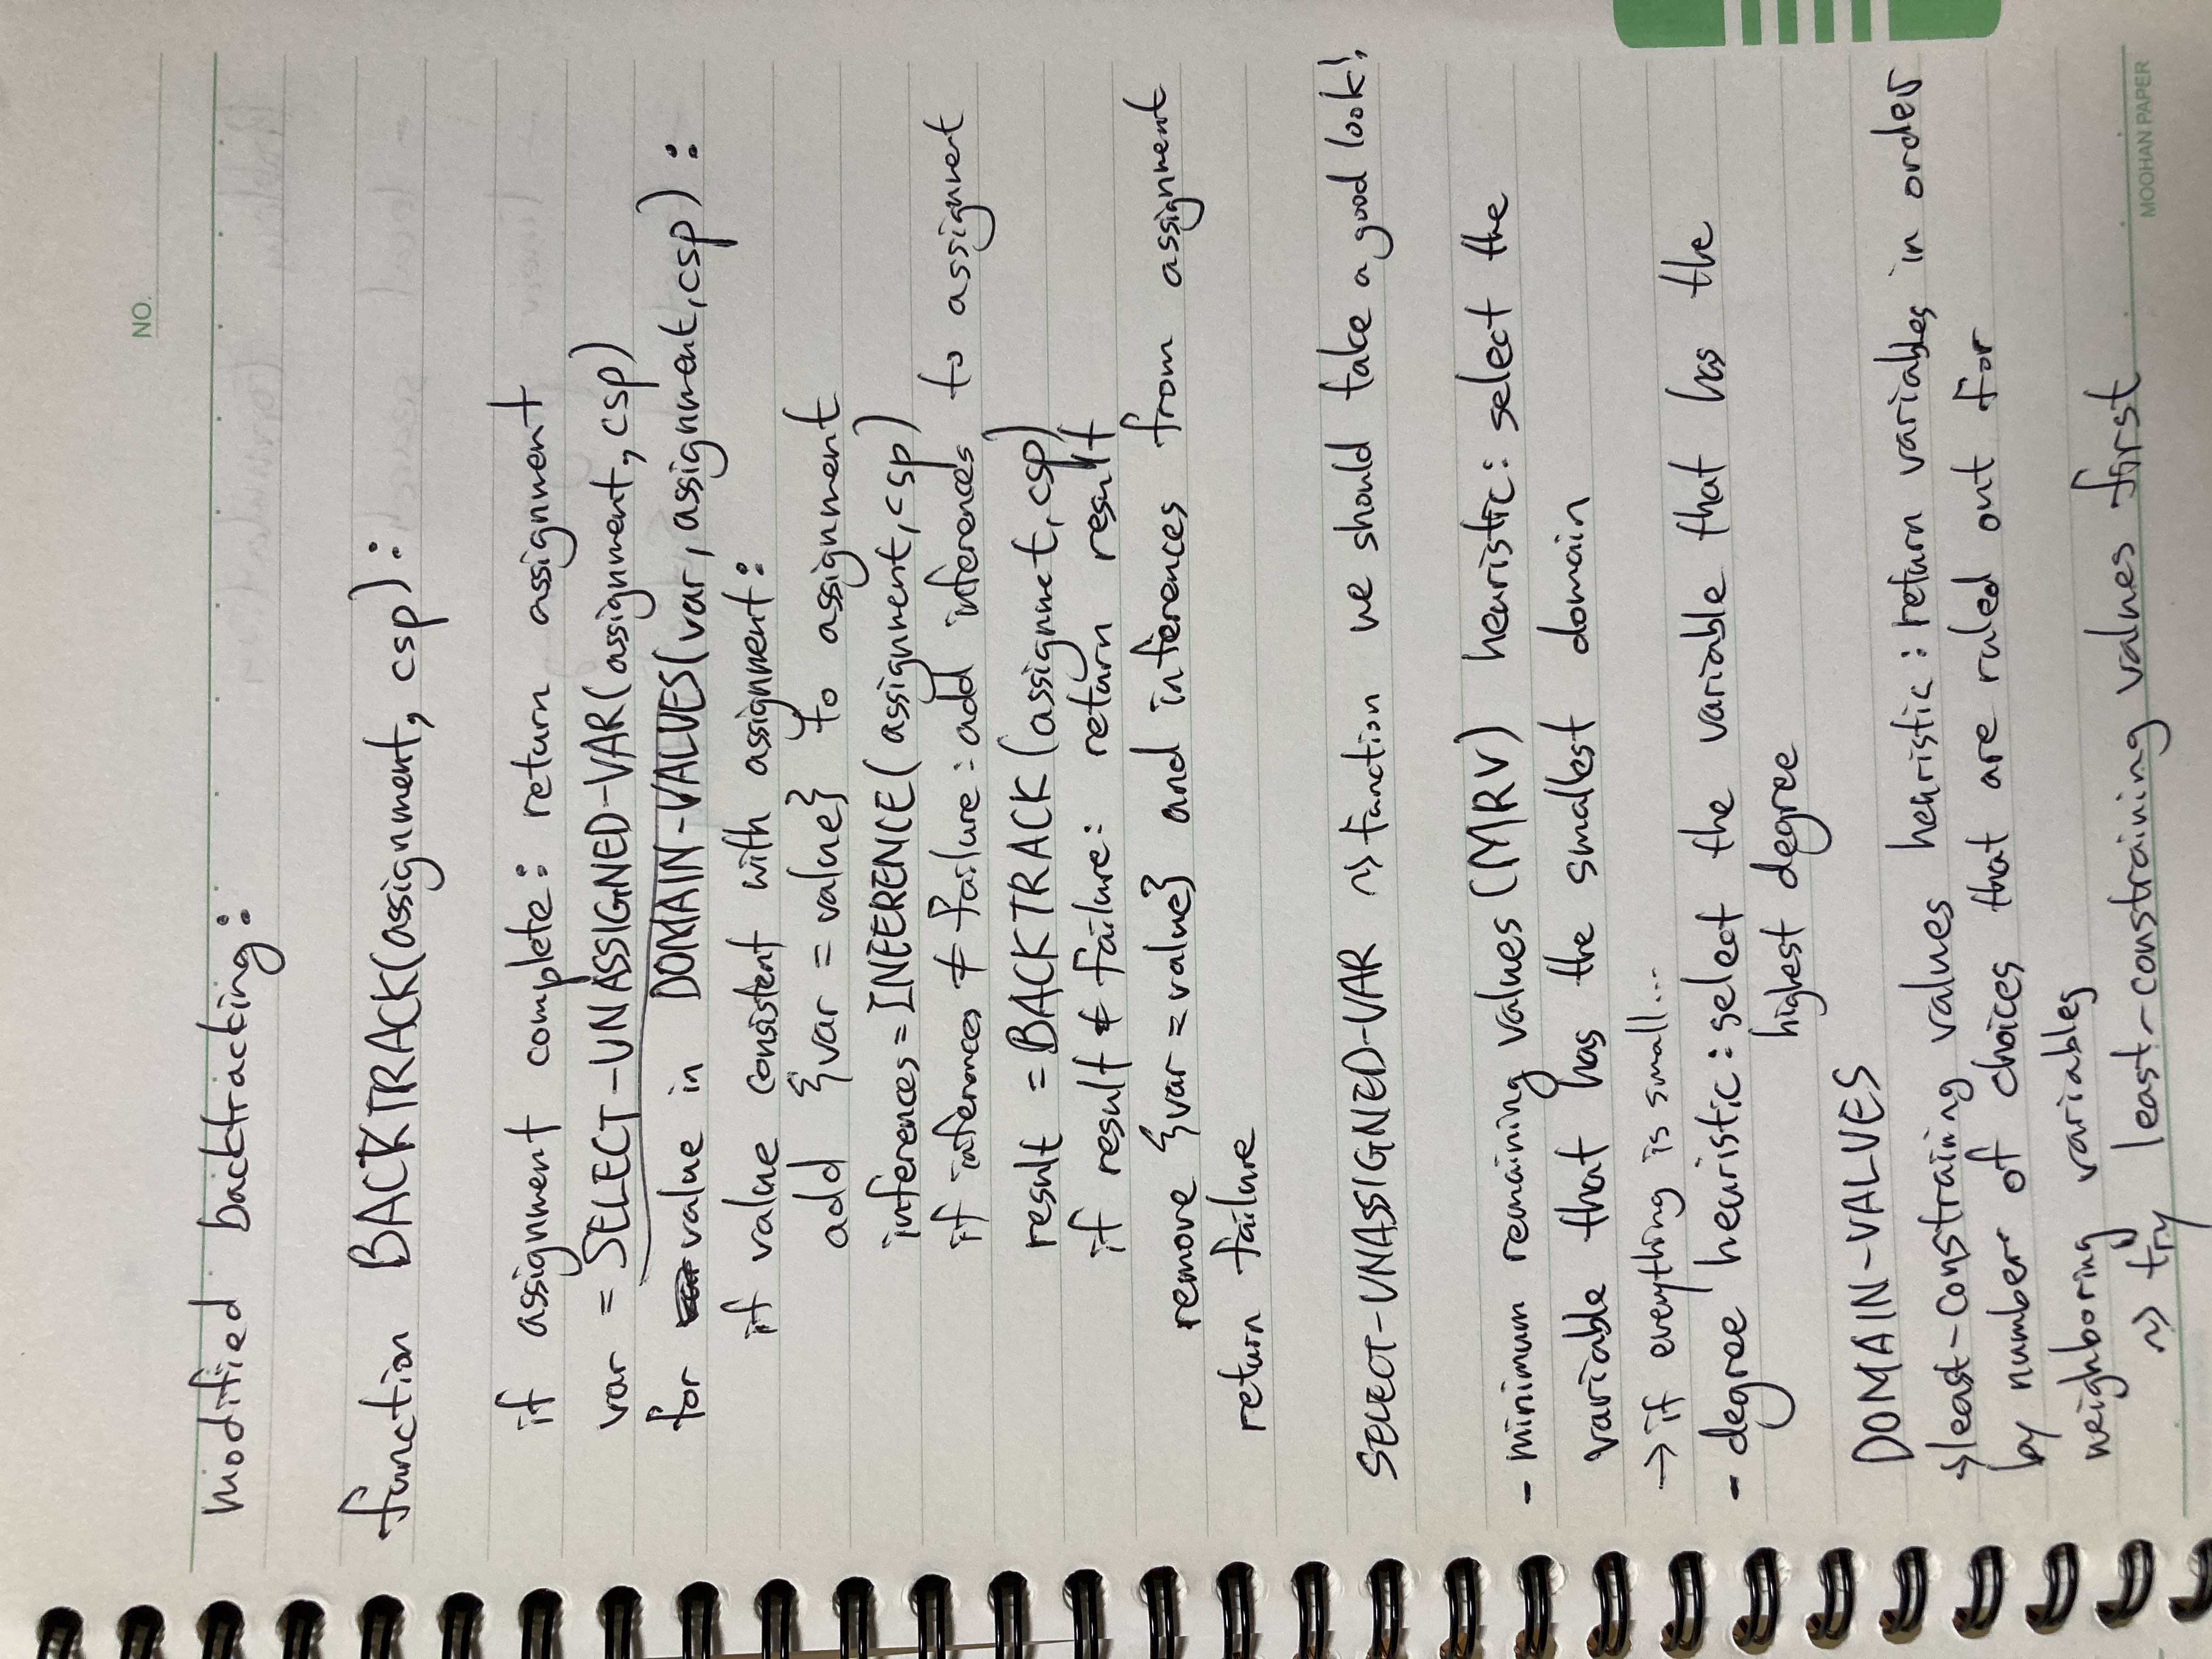 NO.
modified backtracking:
function BACKTRACK(assignment, csp):
if assignment complete: return assignment
var = SELECT-UNASSIGNED-VAR(assignment, csp)
for value in DOMAIN-VALUES(var, assignment, csp):
if value consistent with assignment:
add {var = value} to assignment
inferences = INFERENCE(assignment, csp)
if inferences ≠ failure: add inferences to assignment
result = BACKTRACK(assignmet, csp)
if result ≠ failure: return result
remove {var = value} and inferences from assignment
return failure
SELECT-UNASSIGNED-VAR ~> function we should take a good look!
- minimum remaining values (MRV) heuristic: select the
variable that has the smallest domain
→ if everything is small...
- degree heuristic: select the variable that has the
highest degree
DOMAIN-VALUES
→ least-constraining values heuristic: return variables in order
by number of choices that are ruled out for
neighboring variables
~> try least-constraining values first
MOOHAN PAPER